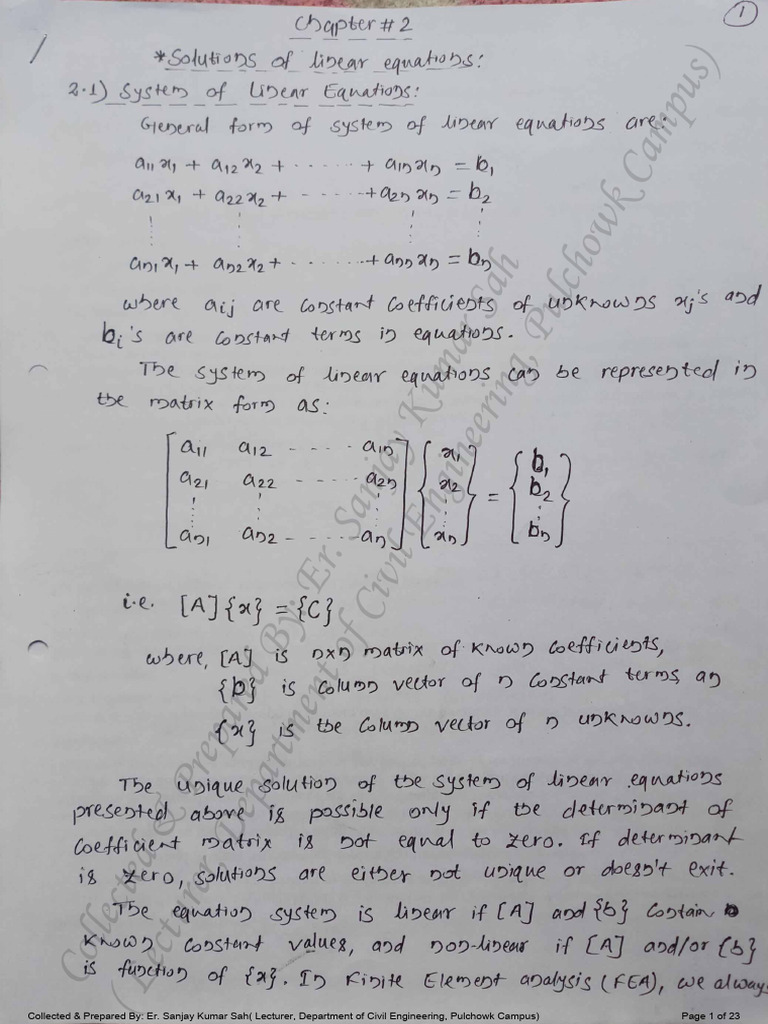 1
Chapter # 2
*Solutions of linear equations:
2.1) System of Linear Equations:
General form of system of linear equations are:
a11 x1 + a12 x2 + ...... + a1n xn = b1
a21 x1 + a22 x2 + ...... + a2n xn = b2
an1 x1 + an2 x2 + ...... + ann xn = bn
where aij are constant coefficients of unknowns xj's and
bi's are constant terms in equations.
The system of linear equations can be represented in
the matrix form as:
[a11 a12 ----- a1n] {x1} = {b1}
[a21 a22 ----- a2n] {x2} {b2}
[an1 an2 ----- an] {xn} {bn}
i.e. [A]{x} = {C}
where, [A] is nxn matrix of known coefficients,
{b} is column vector of n constant terms, an
{x} is the column vector of n unknowns.
The unique solution of the system of linear equations
presented above is possible only if the determinant of
coefficient matrix is not equal to zero. If determinant
is zero, solutions are either not unique or doesn't exit.
The equation system is linear if [A] and {b} contain
known constant values, and non-linear if [A] and/or {b}
is function of {x}. In Finite Element analysis (FEA), we always
Collected & Prepared By: Er. Sanjay Kumar Sah
(Lecturer, Department of Civil Engineering, Pulchowk Campus)
Collected & Prepared By: Er. Sanjay Kumar Sah( Lecturer, Department of Civil Engineering, Pulchowk Campus)
Page 1 of 23